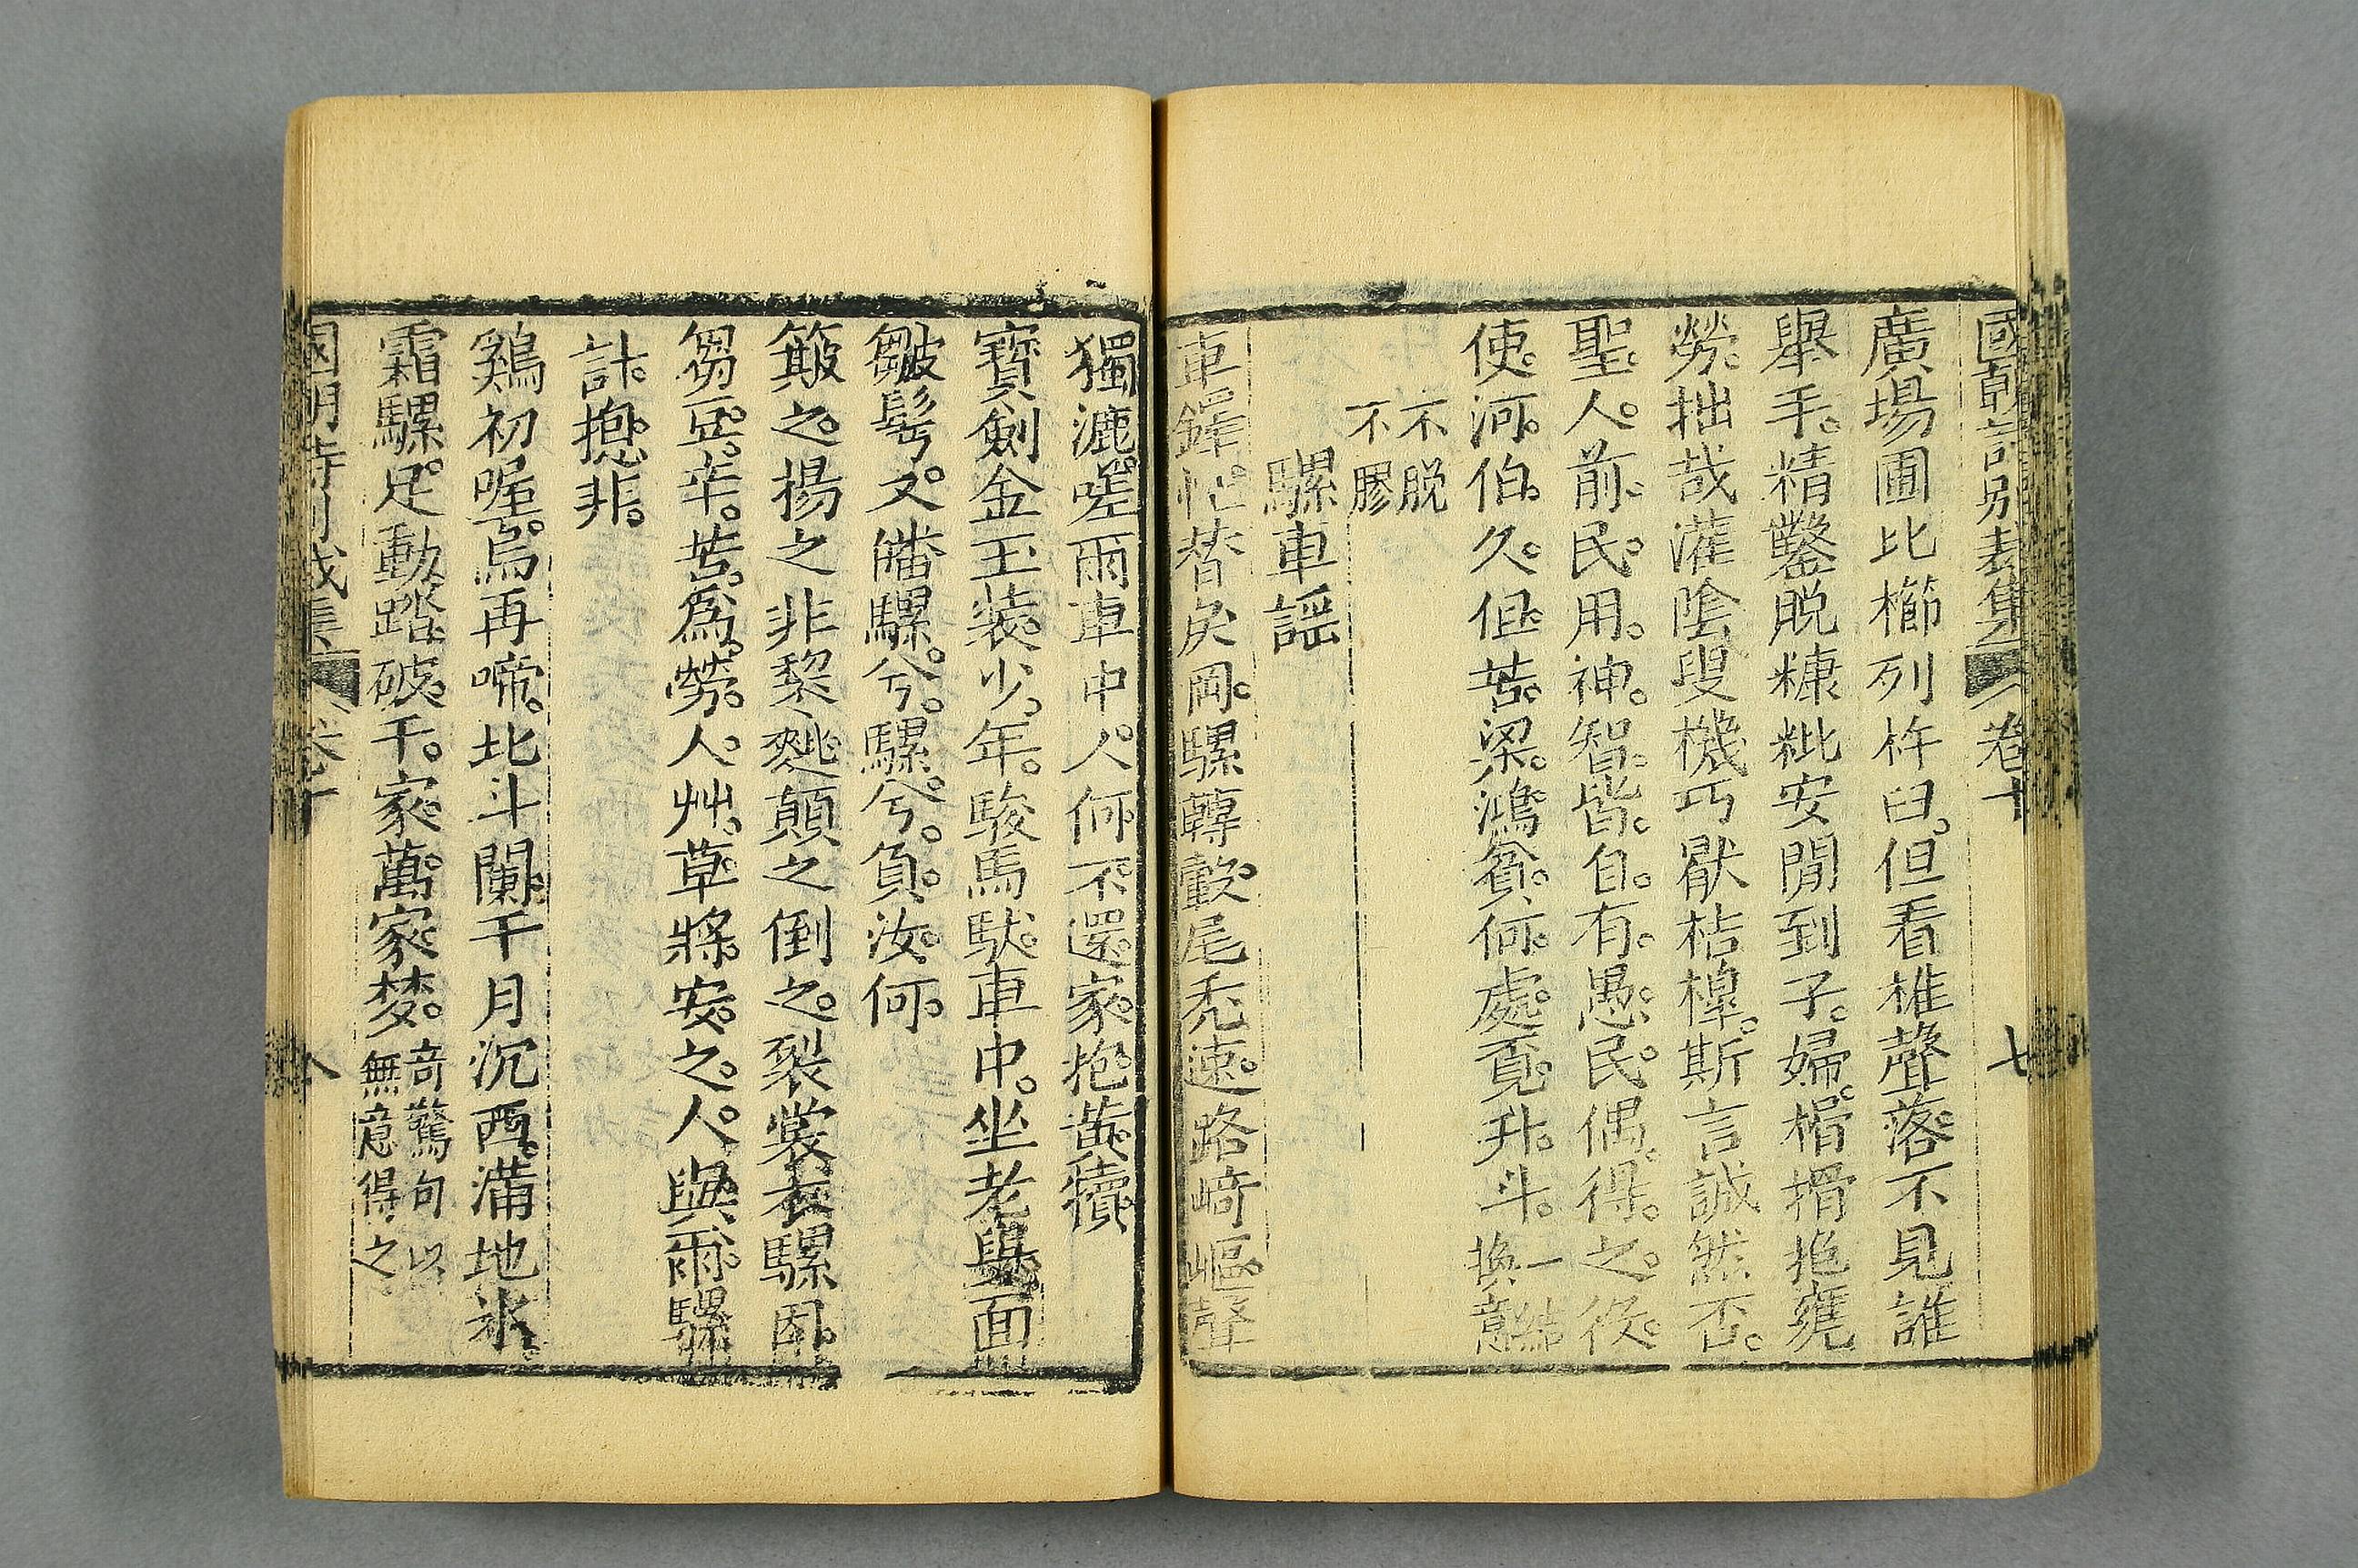 國朝詩別裁集 卷十 七
廣場圃比櫛列杵臼。但看椎聲落不見誰
舉手。精鑿脫糠粃安閒到子。婦。榾捐抱甕
勞。拙哉灌陰叟機巧厭桔橰。斯言誠然否。
聖。人。前。民。用。神。智。皆。自。有。愚。民。偶。得。之。役。
使。河。伯。久。但。苦。梁。鴻。貧。何。處。覓。升。斗。一結
換意
不脫
不膠
騾車謠
車鐸忙。替戾岡。騾轉歡尾禿速。路崎嶇。聲
獨漉。嗟爾車中。人。何。不。還。家。抱。黃。犢。
寶劍金玉裝。少。年。駿馬馱。車中。坐老輿。面
皺髩。又。皤騾。兮。騾。兮。負。汝。何。
簸之。揚之非黎䴬顛之倒之。裂裳衣騾困。
芻。豆。辛。苦。爲。勞。人。艸。草。將。安。之。人。與。爾。騾
計。摠。非。
鷄初喔。烏再啼。北斗闌干月沉西。滿地氷。
霜騾。足動。踏破。千。家。萬。家。夢。奇驚句以
無意得之
國朝詩別裁集 卷十 八